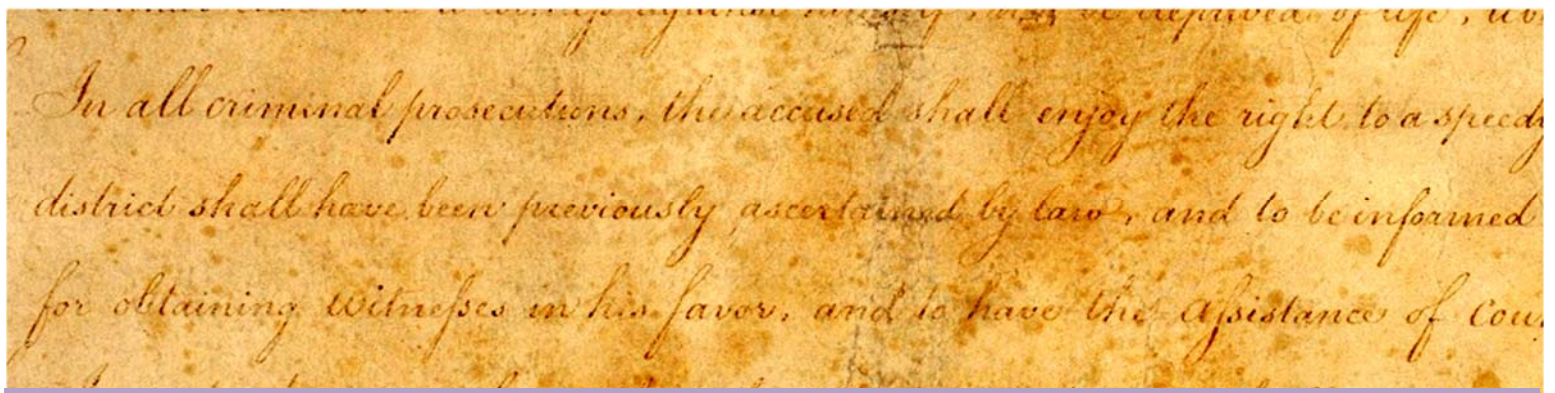 against of life,
In all criminal prosecutions, the accused shall enjoy the right to a speedy
district shall have been previously ascertained by law, and to be informed
for obtaining witneſses in his favor, and to have the aſsistance of cou